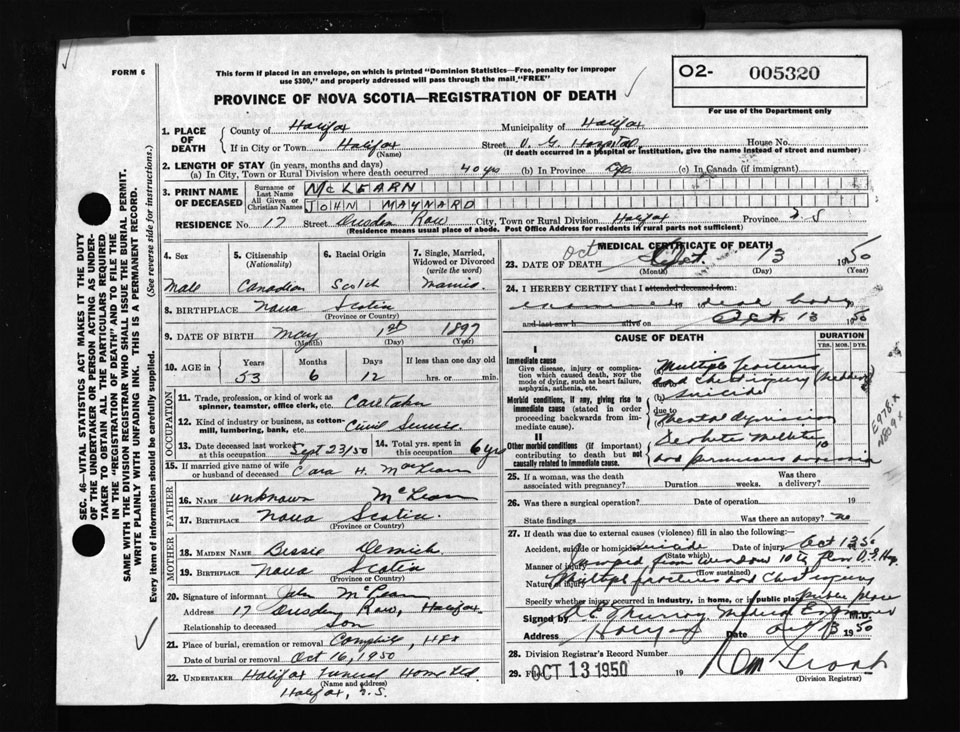 FORM 6
This form if placed in an envelope, on which is printed "Dominion Statistics—Free, penalty for improper
use $300," and properly addressed will pass through the mail "FREE"
PROVINCE OF NOVA SCOTIA—REGISTRATION OF DEATH
O2- 005320
For use of the Department only
SEC. 46—VITAL STATISTICS ACT MAKES IT THE DUTY
OF THE UNDERTAKER OR PERSON ACTING AS UNDER-
TAKER TO OBTAIN ALL THE PARTICULARS REQUIRED
IN THE "REGISTRATION OF DEATH" AND TO FILE THE
SAME WITH THE DIVISION REGISTRAR WHO SHALL ISSUE THE BURIAL PERMIT.
WRITE PLAINLY WITH UNFADING INK. THIS IS A PERMANENT RECORD.
Every item of information should be carefully supplied. (See reverse side for instructions.)
1. PLACE OF DEATH
County of Halifax Municipality of Halifax
If in City or Town Halifax Street V. G. Hospital House No.
(Name) (If death occurred in a hospital or institution, give the name instead of street and number)
2. LENGTH OF STAY (in years, months and days)
(a) In City, Town or Rural Division where death occurred 40 yrs (b) In Province (c) In Canada (if immigrant)
3. PRINT NAME OF DECEASED
Surname or Last Name McLEARN
All Given or Christian Names JOHN MAYNARD
RESIDENCE No. 17 Street Dresden Row City, Town or Rural Division Halifax Province N S
(Residence means usual place of abode. Post Office Address for residents in rural parts not sufficient)
4. Sex 5. Citizenship (Nationality) 6. Racial Origin 7. Single, Married, Widowed or Divorced (write the word)
Male Canadian Scotch
8. BIRTHPLACE Nova Scotia
(Province or Country)
9. DATE OF BIRTH May 1st 1897
(Month) (Day) (Year)
10. AGE in Years Months Days If less than one day old
53 6 12 hrs. or min.
OCCUPATION
11. Trade, profession, or kind of work as
spinner, teamster, office clerk, etc. Caretaker
12. Kind of industry or business, as cotton-
mill, lumbering, bank, etc. Civil Service
13. Date deceased last worked at this occupation Sept 23/50 14. Total yrs. spent in this occupation 6 yrs
15. If married give name of wife
or husband of deceased H.
FATHER
16. NAME unknown McLearn
17. BIRTHPLACE Nova Scotia
(Province or Country)
MOTHER
18. MAIDEN NAME Bessie
19. BIRTHPLACE Nova Scotia
(Province or Country)
20. Signature of informant John McLearn
Address 17 Dresden Row, Halifax
Relationship to deceased Son
21. Place of burial, cremation or removal Camphill, HFX
Date of burial or removal Oct 16, 1950
22. UNDERTAKER Halifax Funeral Home Ltd.
(Name and address)
Halifax, N.S.
MEDICAL CERTIFICATE OF DEATH
Oct
23. DATE OF DEATH Oct. 13 1950
(Month) (Day) (Year)
24. I HEREBY CERTIFY that I attended deceased from:
examined dead body
and last saw h alive on Oct 13 1950
CAUSE OF DEATH
DURATION
YRS. MOS. DYS.
I
Immediate cause
Give disease, injury or complica-
tion which caused death, not the
mode of dying, such as heart failure,
asphyxia, asthenia, etc.
Morbid conditions, if any, giving rise to
immediate cause (stated in order
proceeding backwards from im-
mediate cause).
II
Other morbid conditions (if important)
contributing to death but not
causally related to immediate cause.
Multiple fractures
and Chest injury
Suicide
due to
Mental depression
Diabetes Mellitus
and pernicious anaemia
E978.X
25. If a woman, was the death associated with pregnancy? Duration weeks. Was there a delivery?
26. Was there a surgical operation? Date of operation 19
State findings Was there an autopsy? no
27. If death was due to external causes (violence) fill in also the following:
Accident, suicide or homicide suicide Date of injury Oct 13 50
(State which)
Manner of injury Jumped from window 10th floor V. G. Hosp
(How sustained)
Nature of injury Multiple fractures and Chest injury
Specify whether injury occurred in industry, in home, or in public place public place
Signed by Medical Examiner M.D.
Address Halifax Date Oct 13 1950
28. Division Registrar's Record Number
29. Filed OCT 13 1950 19
(Division Registrar)